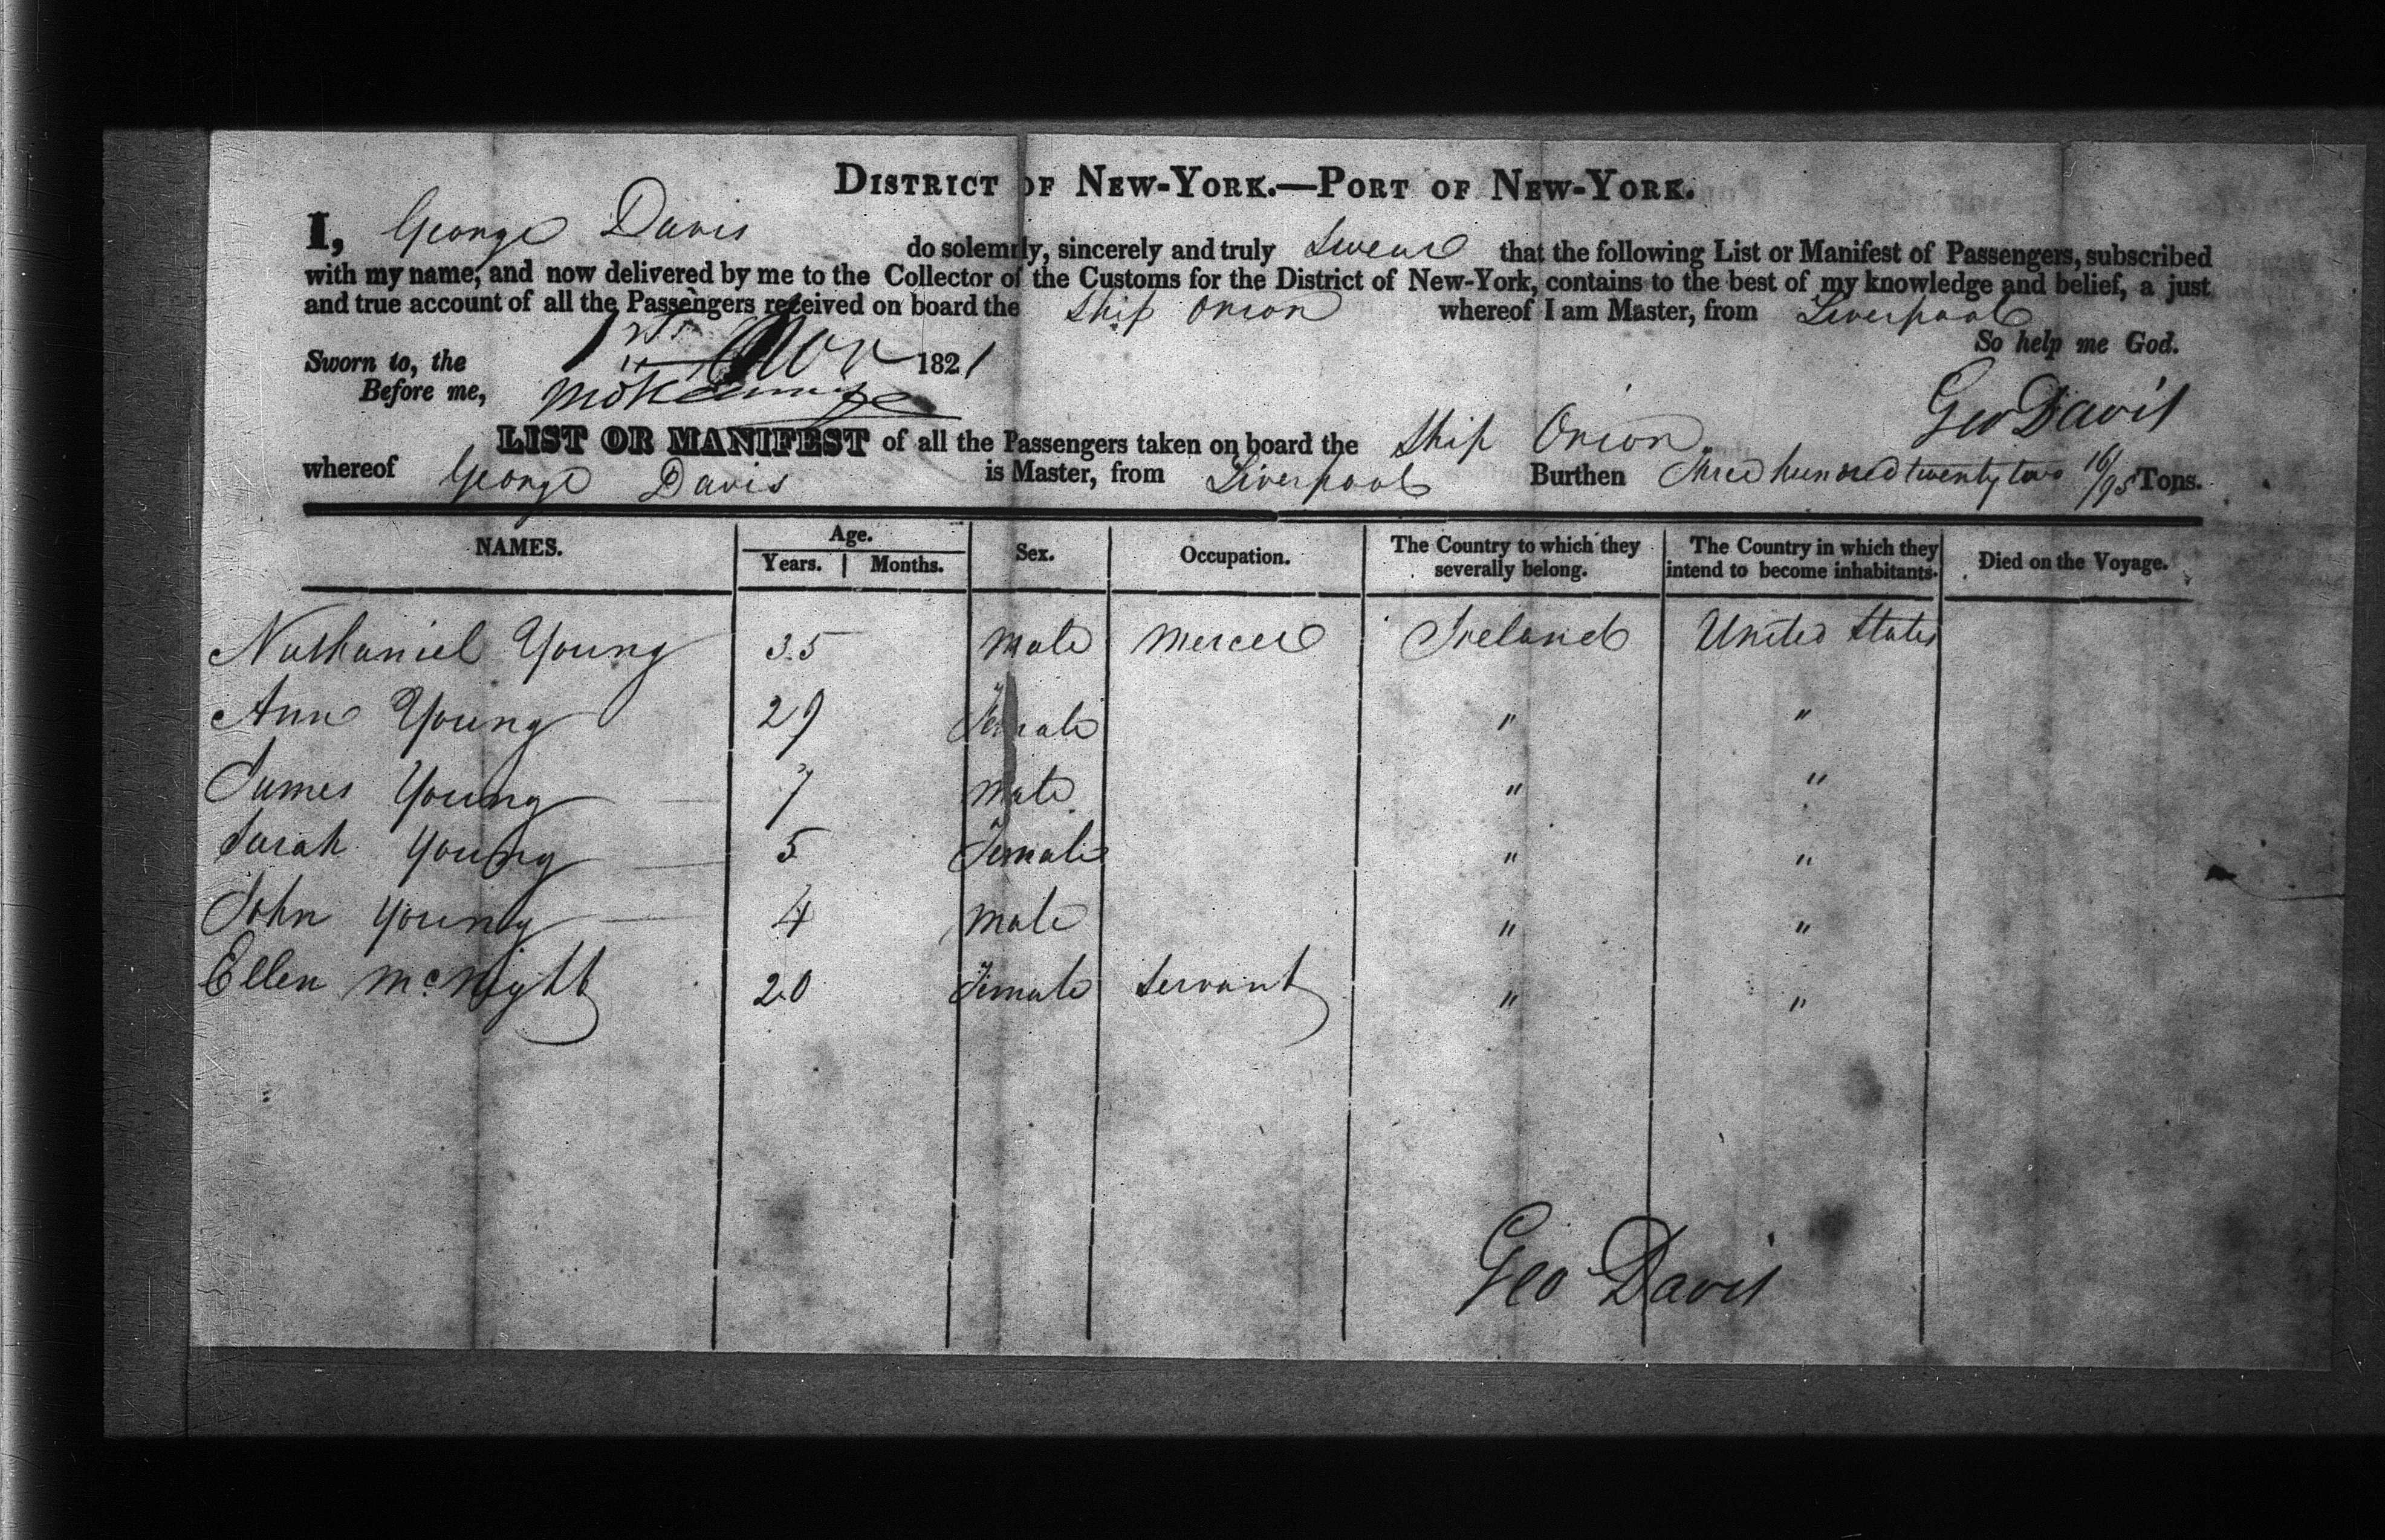 DISTRICT OF NEW-YORK.—PORT OF NEW-YORK.
I, George Davis do solemnly, sincerely and truly swear that the following List or Manifest of Passengers, subscribed
with my name, and now delivered by me to the Collector of the Customs for the District of New-York, contains to the best of my knowledge and belief, a just
and true account of all the Passengers received on board the Ship Orion whereof I am Master, from Liverpool
So help me God.
Sworn to, the 1st Nov 1821
Before me,
Geo Davis
LIST OR MANIFEST of all the Passengers taken on board the Ship Orion
whereof George Davis is Master, from Liverpool Burthen Three hundred twenty two 16/95 Tons.
NAMES. Age. Years. Months. Sex. Occupation. The Country to which they severally belong. The Country in which they intend to become inhabitants. Died on the Voyage.
Nathaniel Young 35 male Mercer Ireland United States
Ann Young 29 Female " "
James Young 7 male " "
Sarah Young 5 Female " "
John Young 4 male " "
Ellen McNight 20 Female Servant " "
Geo Davis